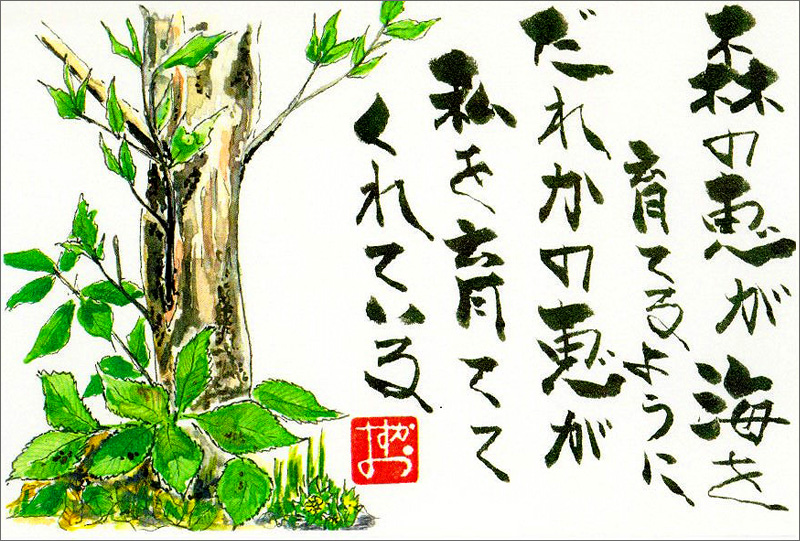 森の恵が海を
育てるように
だれかの恵が
私を育てて
くれている